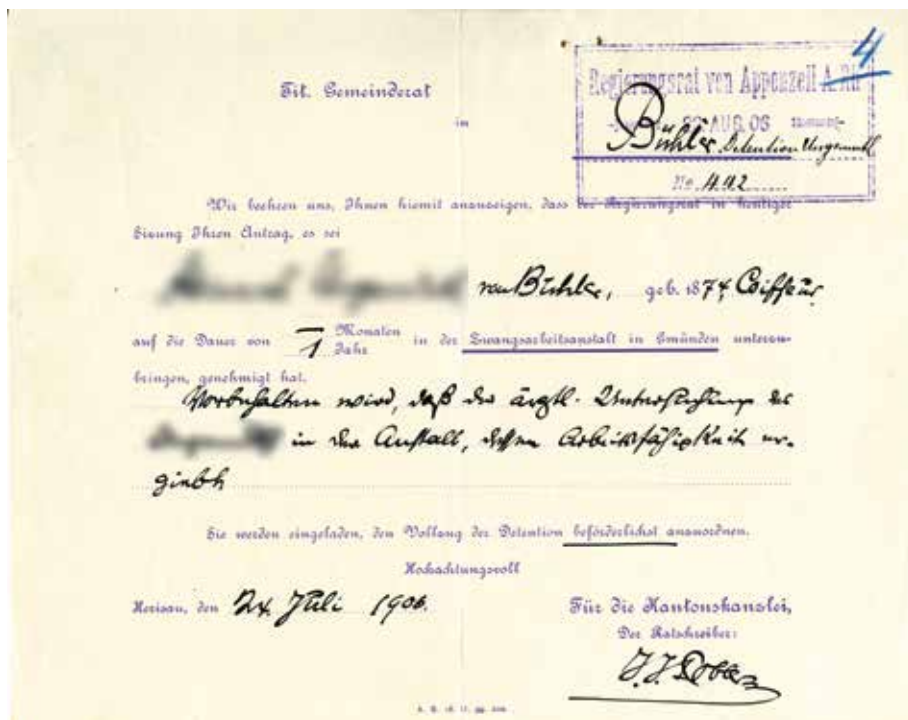 4
Tit. Gemeinderat
Regierungsrat von Appenzell A. Rh.
in
AUG. 06
Bühler Detention
No. 442
Wir beehren uns, Ihnen hiemit anzuzeigen, dass der Regierungsrat in heutiger
Sizung Ihren Antrag, es sei
von Bühler, geb. 1874, Coiffeur
auf die Dauer von 1 Monaten
Jahr
in der Zwangsarbeitsanstalt in Gmünden unterzu-
bringen, genehmigt hat.
Vorbehalten wird, daß die ärztl. Untersuchung des
in der Anstalt, dessen Arbeitsfähigkeit er-
giebt
Sie werden eingeladen, den Vollzug der Detention beförderlichst anzuordnen.
Hochachtungsvoll
Herisau, den 24. Juli 1906.
Für die Kantonskanzlei,
Der Ratschreiber: